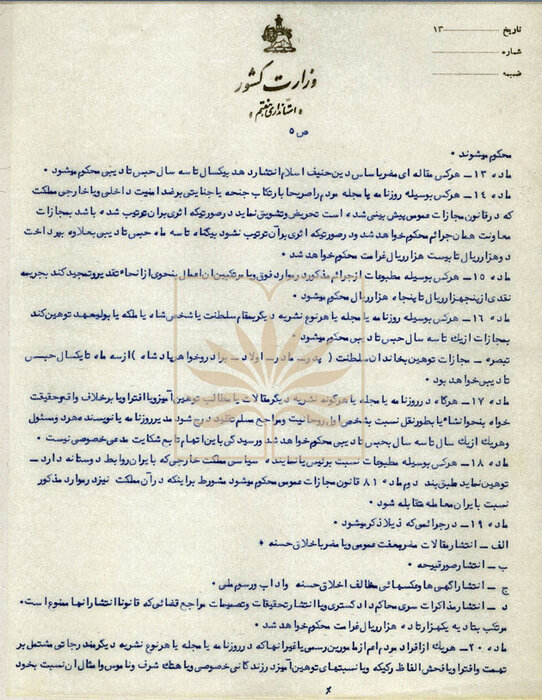 تاریخ ۱۳
شماره
ضمیمه
وزارت کشور
استانداری هفتم
ص ۵
محکوم میشوند .
ماده ۱۳ــ هرکس مقاله ای مضر باساس دین حنیف اسلام انتشار دهد بیکسال تا سه سال حبس تادیبی محکوم میشود .
ماده ۱۴ــ هرکس بوسیله روزنامه یا مجله مردم را صریحا بارتکاب جنحه یا جنایتی برضد امنیت داخلی ویا خارجی مملکت
که در قانون مجازات عمومی پیش بینی شده است تحریض وتشویق نماید درصورتیکه اثری برآن ترتیب شده باشد بمجازات
معاونت همان جرائم محکوم خواهد شد ودرصورتیکه اثری برآن ترتیب نشود بیکماه تا سه ماه حبس تادیبی بعلاوه بپرداخت
دوهزار ریال تا بیست هزار ریال غرامت محکوم خواهد شد .
ماده ۱۵ــ هرکس بوسیله مطبوعات ازجرائم مذکور در موارد فوق ویا مرتکبین آن اعمال بنحوی از انحاء تقدیر وتمجید کند بجریمه
نقدی از پنجهزار ریال تا پنجاه هزار ریال محکوم میشود .
ماده ۱۶ــ هرکس بوسیله روزنامه یا مجله یا هر نوع نشریه دیگر بمقام سلطنت یا شخص شاه یا ملکه یا بولیعهد توهین کند
بمجازات از یک تا سه سال حبس تادیبی محکوم میشود .
تبصره ــ مجازات توهین بخاندان سلطنت ( پدر ــ مادر ــ اولاد ــ برادر وخواهر پادشاه ) از سه ماه تا یکسال حبس
تادیبی خواهد بود .
ماده ۱۷ــ هرگاه در روزنامه یا مجله یا هرگونه نشریه دیگر مقالات یا مطالب توهین آمیز ویا افترا ویا برخلاف واقع وحقیقت
خواه بنحو انشاء یا بطور نقل نسبت بشخص اول روحانیت ومراجع مسلم تقلید درج شود مدیر روزنامه یا نویسنده هر دو مسئول
وهریک از یک سال تا سه سال بحبس تادیبی محکوم خواهد شد ورسیدگی باین اتهام تابع شکایت مدعی خصوصی نیست .
ماده ۱۸ــ هرکس بوسیله مطبوعات نسبت برئیس یا نماینده سیاسی مملکت خارجی که با ایران روابط دوستانه دارد ــ
توهین نماید طبق بند دوم ماده ۸۱ قانون مجازات عمومی محکوم میشود مشروط براینکه در آن مملکت نیز در موارد مذکور
نسبت با ایران معامله متقابله شود .
ماده ۱۹ــ در جرائمی که ذیلا ذکر میشود .
الف ــ انتشار مقالات مضر بعفت عمومی ویا مضر باخلاق حسنه .
ب ــ انتشار صور قبیحه .
ج ــ انتشار آگهی ها وعکسهائی مخالف اخلاق حسنه وآداب ورسوم ملی .
د ــ انتشار مذاکرات سری محاکم دادگستری ویا انتشار تحقیقات وتصمیمات مراجع قضائی که قانونا انتشار آنها ممنوع است .
مرتکب بتادیه یکهزار تا ده هزار ریال غرامت محکوم خواهد شد .
ماده ۲۰ــ هریک از افراد مردم اعم از مامورین رسمی یا غیر آنها که در روزنامه یا مجله یا هر نوع نشریه دیگر مندرجاتی مشتمل بر
تهمت وافترا ویا فحش الفاظ رکیکه ویا نسبتهای توهین آمیز در زندگانی خصوصی ویا هتک شرف وناموس وامثال آن نسبت بخود